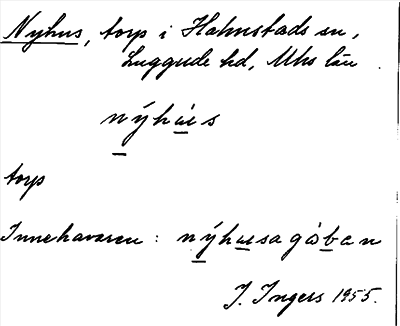 Nyhus, torp i Halmstads sn,
Luggude hd, Mhs län.
nýhus
torp
Innehavaren: nýhusagóban
I. Ingers 1955.